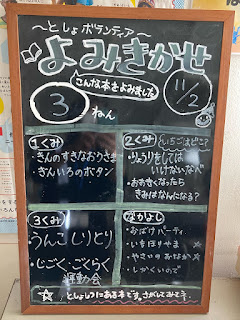 ～としょボランティア～
よみきかせ
こんな本をよみました
1/2
3ねん
1くみ
・きんのすきなおうさま
・きんいろのボタン
2くみ
・いちごはどこ?
・りょうりをしては
いけないなべ
・おおきくなったら
きみはなんになる?
3くみ
・うんこしりとり
・じごくごくらく
運動会
なかよし
・おばけパーティ
・いもほりやま
・やさいのおなか
・しかくいので
☆としょしつにある本です。さがしてみてネ。